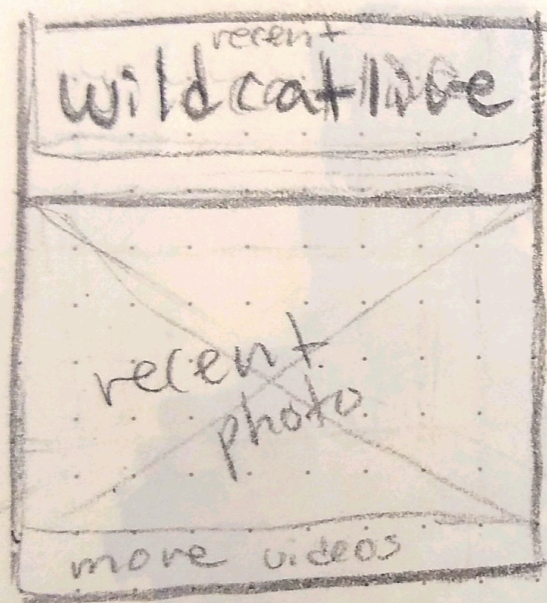 recent
wildcatlive
recent
photo
more videos